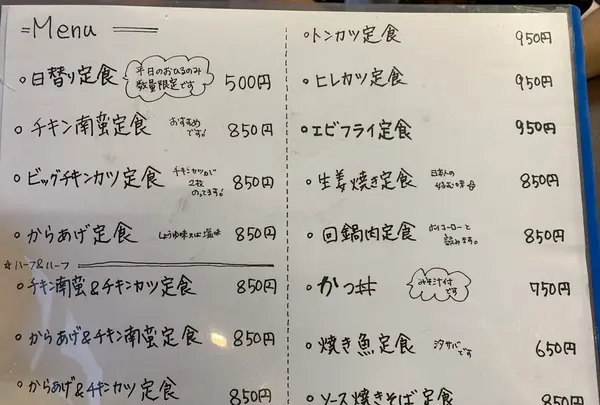 Menu
日替り定食 平日のおひるのみ 数量限定です 500円
チキン南蛮定食 おすすめです! 850円
ビッグチキンカツ定食 チキンカツが2枚のってます! 850円
からあげ定食 しょうゆ味又は塩味 850円
☆ハーフ&ハーフ
チキン南蛮&チキンカツ定食 850円
からあげ&チキン南蛮定食 850円
からあげ&チキンカツ定食 850円
トンカツ定食 950円
ヒレカツ定食 950円
エビフライ定食 950円
生姜焼き定食 日本人の 850円
回鍋肉定食 ホイコーローと読みます。 850円
かつ丼 みそ汁付です 750円
焼き魚定食 〆サバです 650円
ソース焼きそば定食 850円